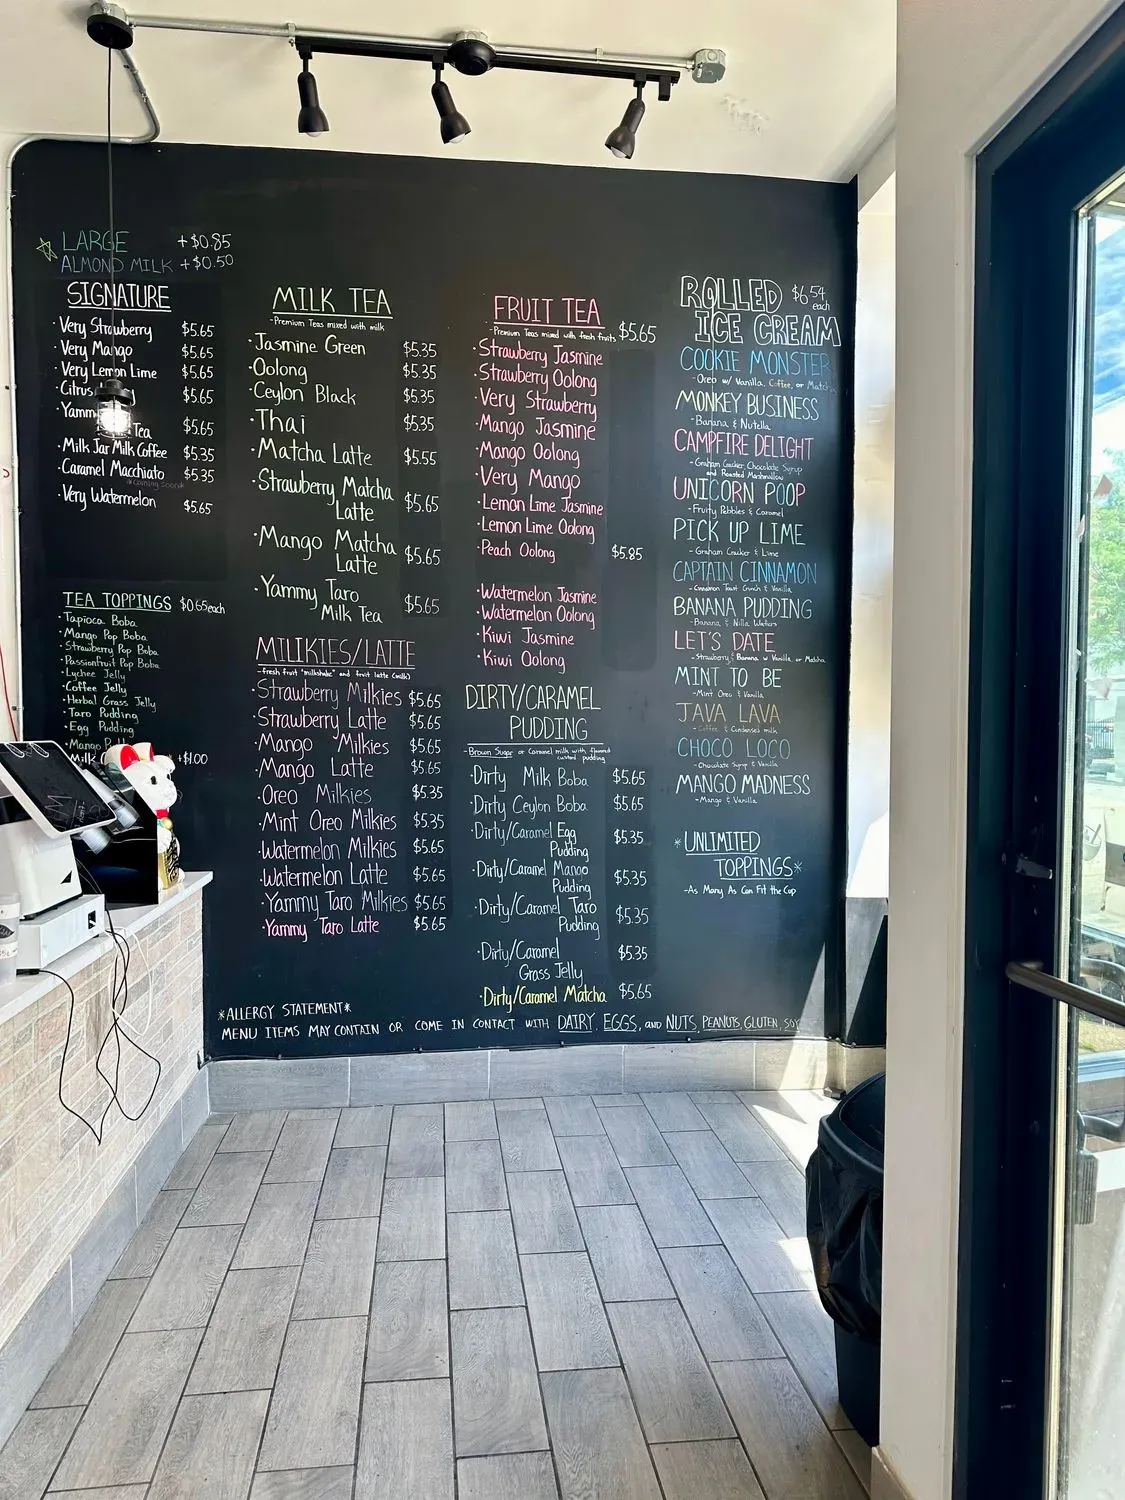 LARGE +$0.85
ALMOND MILK +$0.50
SIGNATURE
·Very Strawberry $5.65
·Very Mango $5.65
·Very Lemon Lime $5.65
·Citrus $5.65
·Yammy
Tea $5.65
·Milk Jar Milk Coffee $5.35
·Caramel Macchiato $5.35
*coming soon*
·Very Watermelon $5.65
TEA TOPPINGS $0.65 each
·Tapioca Boba
·Mango Pop Boba
·Strawberry Pop Boba
·Passionfruit Pop Boba
·Lychee Jelly
·Coffee Jelly
·Herbal Grass Jelly
·Taro Pudding
·Egg Pudding
·Mango
·Milk +$1.00
MILK TEA
-Premium Teas mixed with milk
·Jasmine Green $5.35
·Oolong $5.35
·Ceylon Black $5.35
·Thai $5.35
·Matcha Latte $5.55
·Strawberry Matcha
Latte $5.65
·Mango Matcha
Latte $5.65
·Yammy Taro
Milk Tea $5.65
MILKIES/LATTE
-fresh fruit "milkshake" and fruit latte (milk)
·Strawberry Milkies $5.65
·Strawberry Latte $5.65
·Mango Milkies $5.65
·Mango Latte $5.65
·Oreo Milkies $5.35
·Mint Oreo Milkies $5.35
·Watermelon Milkies $5.65
·Watermelon Latte $5.65
·Yammy Taro Milkies $5.65
·Yammy Taro Latte $5.65
FRUIT TEA
-Premium Teas mixed with fresh fruits $5.65
·Strawberry Jasmine
·Strawberry Oolong
·Very Strawberry
·Mango Jasmine
·Mango Oolong
·Very Mango
·Lemon Lime Jasmine
·Lemon Lime Oolong
·Peach Oolong $5.85
·Watermelon Jasmine
·Watermelon Oolong
·Kiwi Jasmine
·Kiwi Oolong
DIRTY/CARAMEL
PUDDING
-Brown Sugar or Caramel milk with flavored
custard pudding
·Dirty Milk Boba $5.65
·Dirty Ceylon Boba $5.65
·Dirty/Caramel Egg
Pudding $5.35
·Dirty/Caramel Mango
Pudding $5.35
·Dirty/Caramel Taro
Pudding $5.35
·Dirty/Caramel
Grass Jelly $5.35
·Dirty/Caramel Matcha $5.65
ROLLED $6.54 each
ICE CREAM
COOKIE MONSTER
-Oreo w/ Vanilla, Coffee, or Matcha
MONKEY BUSINESS
-Banana & Nutella
CAMPFIRE DELIGHT
-Graham Cracker, Chocolate Syrup
and Roasted Marshmallow
UNICORN POOP
-Fruity Pebbles & Caramel
PICK UP LIME
-Graham Cracker & Lime
CAPTAIN CINNAMON
-Cinnamon Toast Crunch & Vanilla
BANANA PUDDING
-Banana & Nilla Wafers
LET'S DATE
-Strawberry & Banana w Vanilla or Matcha
MINT TO BE
-Mint Oreo & Vanilla
JAVA LAVA
-Coffee & Condensed milk
CHOCO LOCO
-Chocolate Syrup & Vanilla
MANGO MADNESS
-Mango & Vanilla
*UNLIMITED
TOPPINGS*
-As Many As Can Fit the Cup
*ALLERGY STATEMENT*
MENU ITEMS MAY CONTAIN OR COME IN CONTACT WITH DAIRY, EGGS, and NUTS, PEANUTS, GLUTEN, SOY